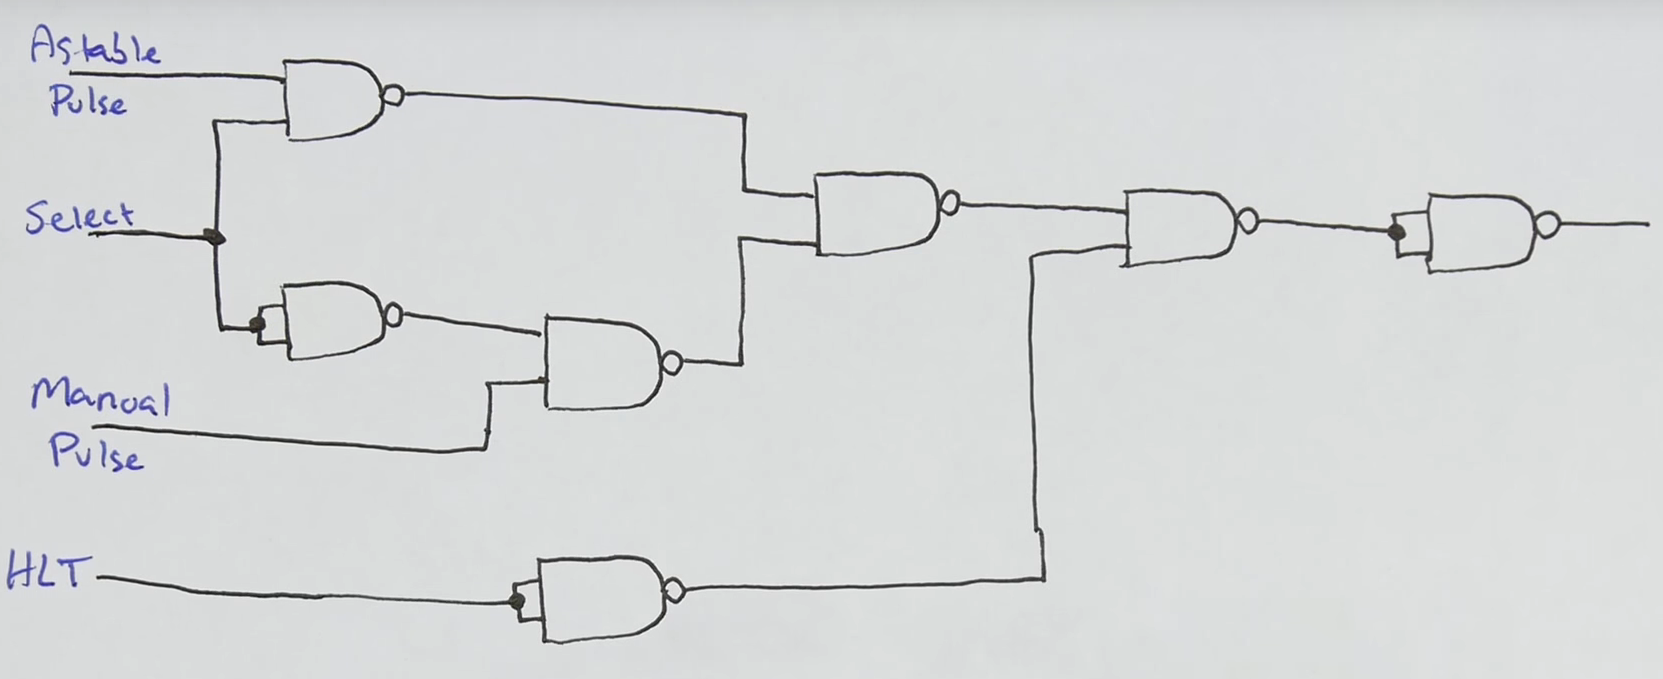 Astable
Pulse
Select
Manual
Pulse
HLT